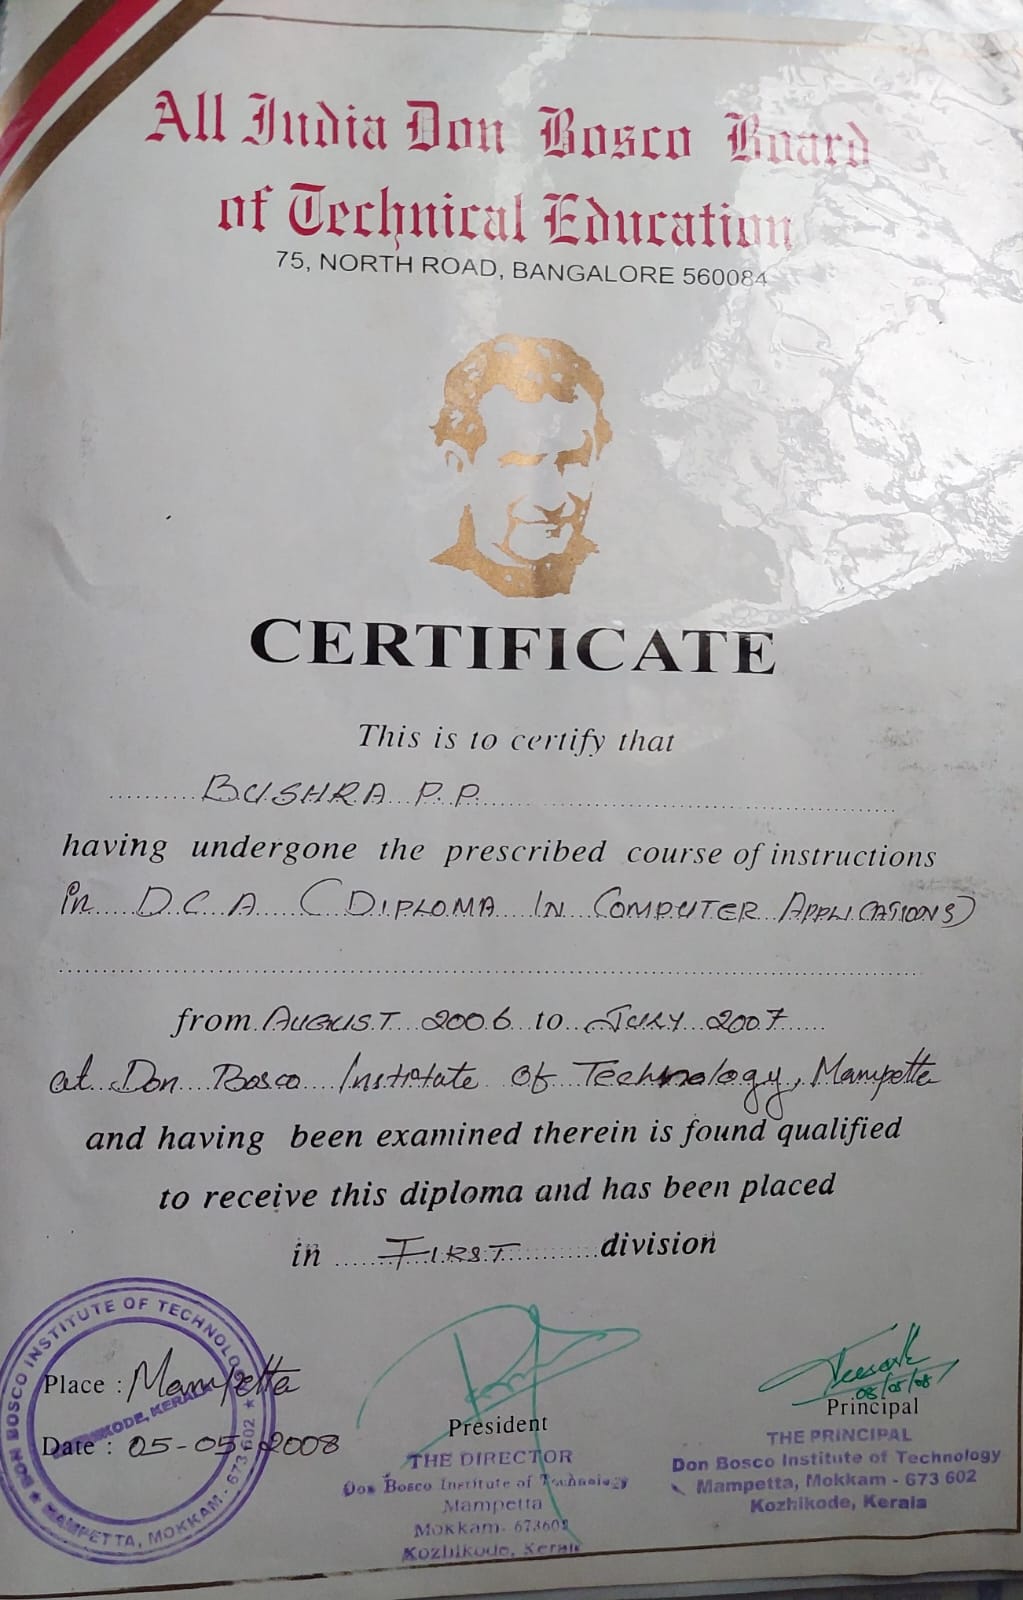 All India Don Bosco Board
of Technical Education
75, NORTH ROAD, BANGALORE 560084
CERTIFICATE
This is to certify that
BUSHRA P.P.
having undergone the prescribed course of instructions
in D.C.A (DIPLOMA IN COMPUTER APPLICATIONS)
from AUGUST 2006 to JULY 2007
at Don Bosco Institute Of Technology, Mampetta
and having been examined therein is found qualified
to receive this diploma and has been placed
in FIRST division
DON BOSCO INSTITUTE OF TECHNOLOGY ★ MAMPETTA, MOKKAM - 673 602 ★
KOZHIKODE, KERALA
Place : Mampetta
Date : 05-05-2008
President
THE DIRECTOR
Don Bosco Institute of Technology
Mampetta
Mokkam- 673602
Kozhikode, Kerala
08/05/08
Principal
THE PRINCIPAL
Don Bosco Institute of Technology
Mampetta, Mokkam - 673 602
Kozhikode, Kerala